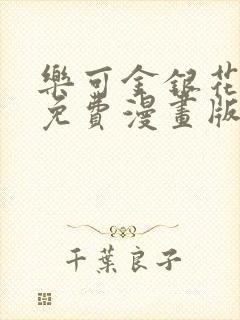 樂可金銀花
免費漫畫版
千葉良子